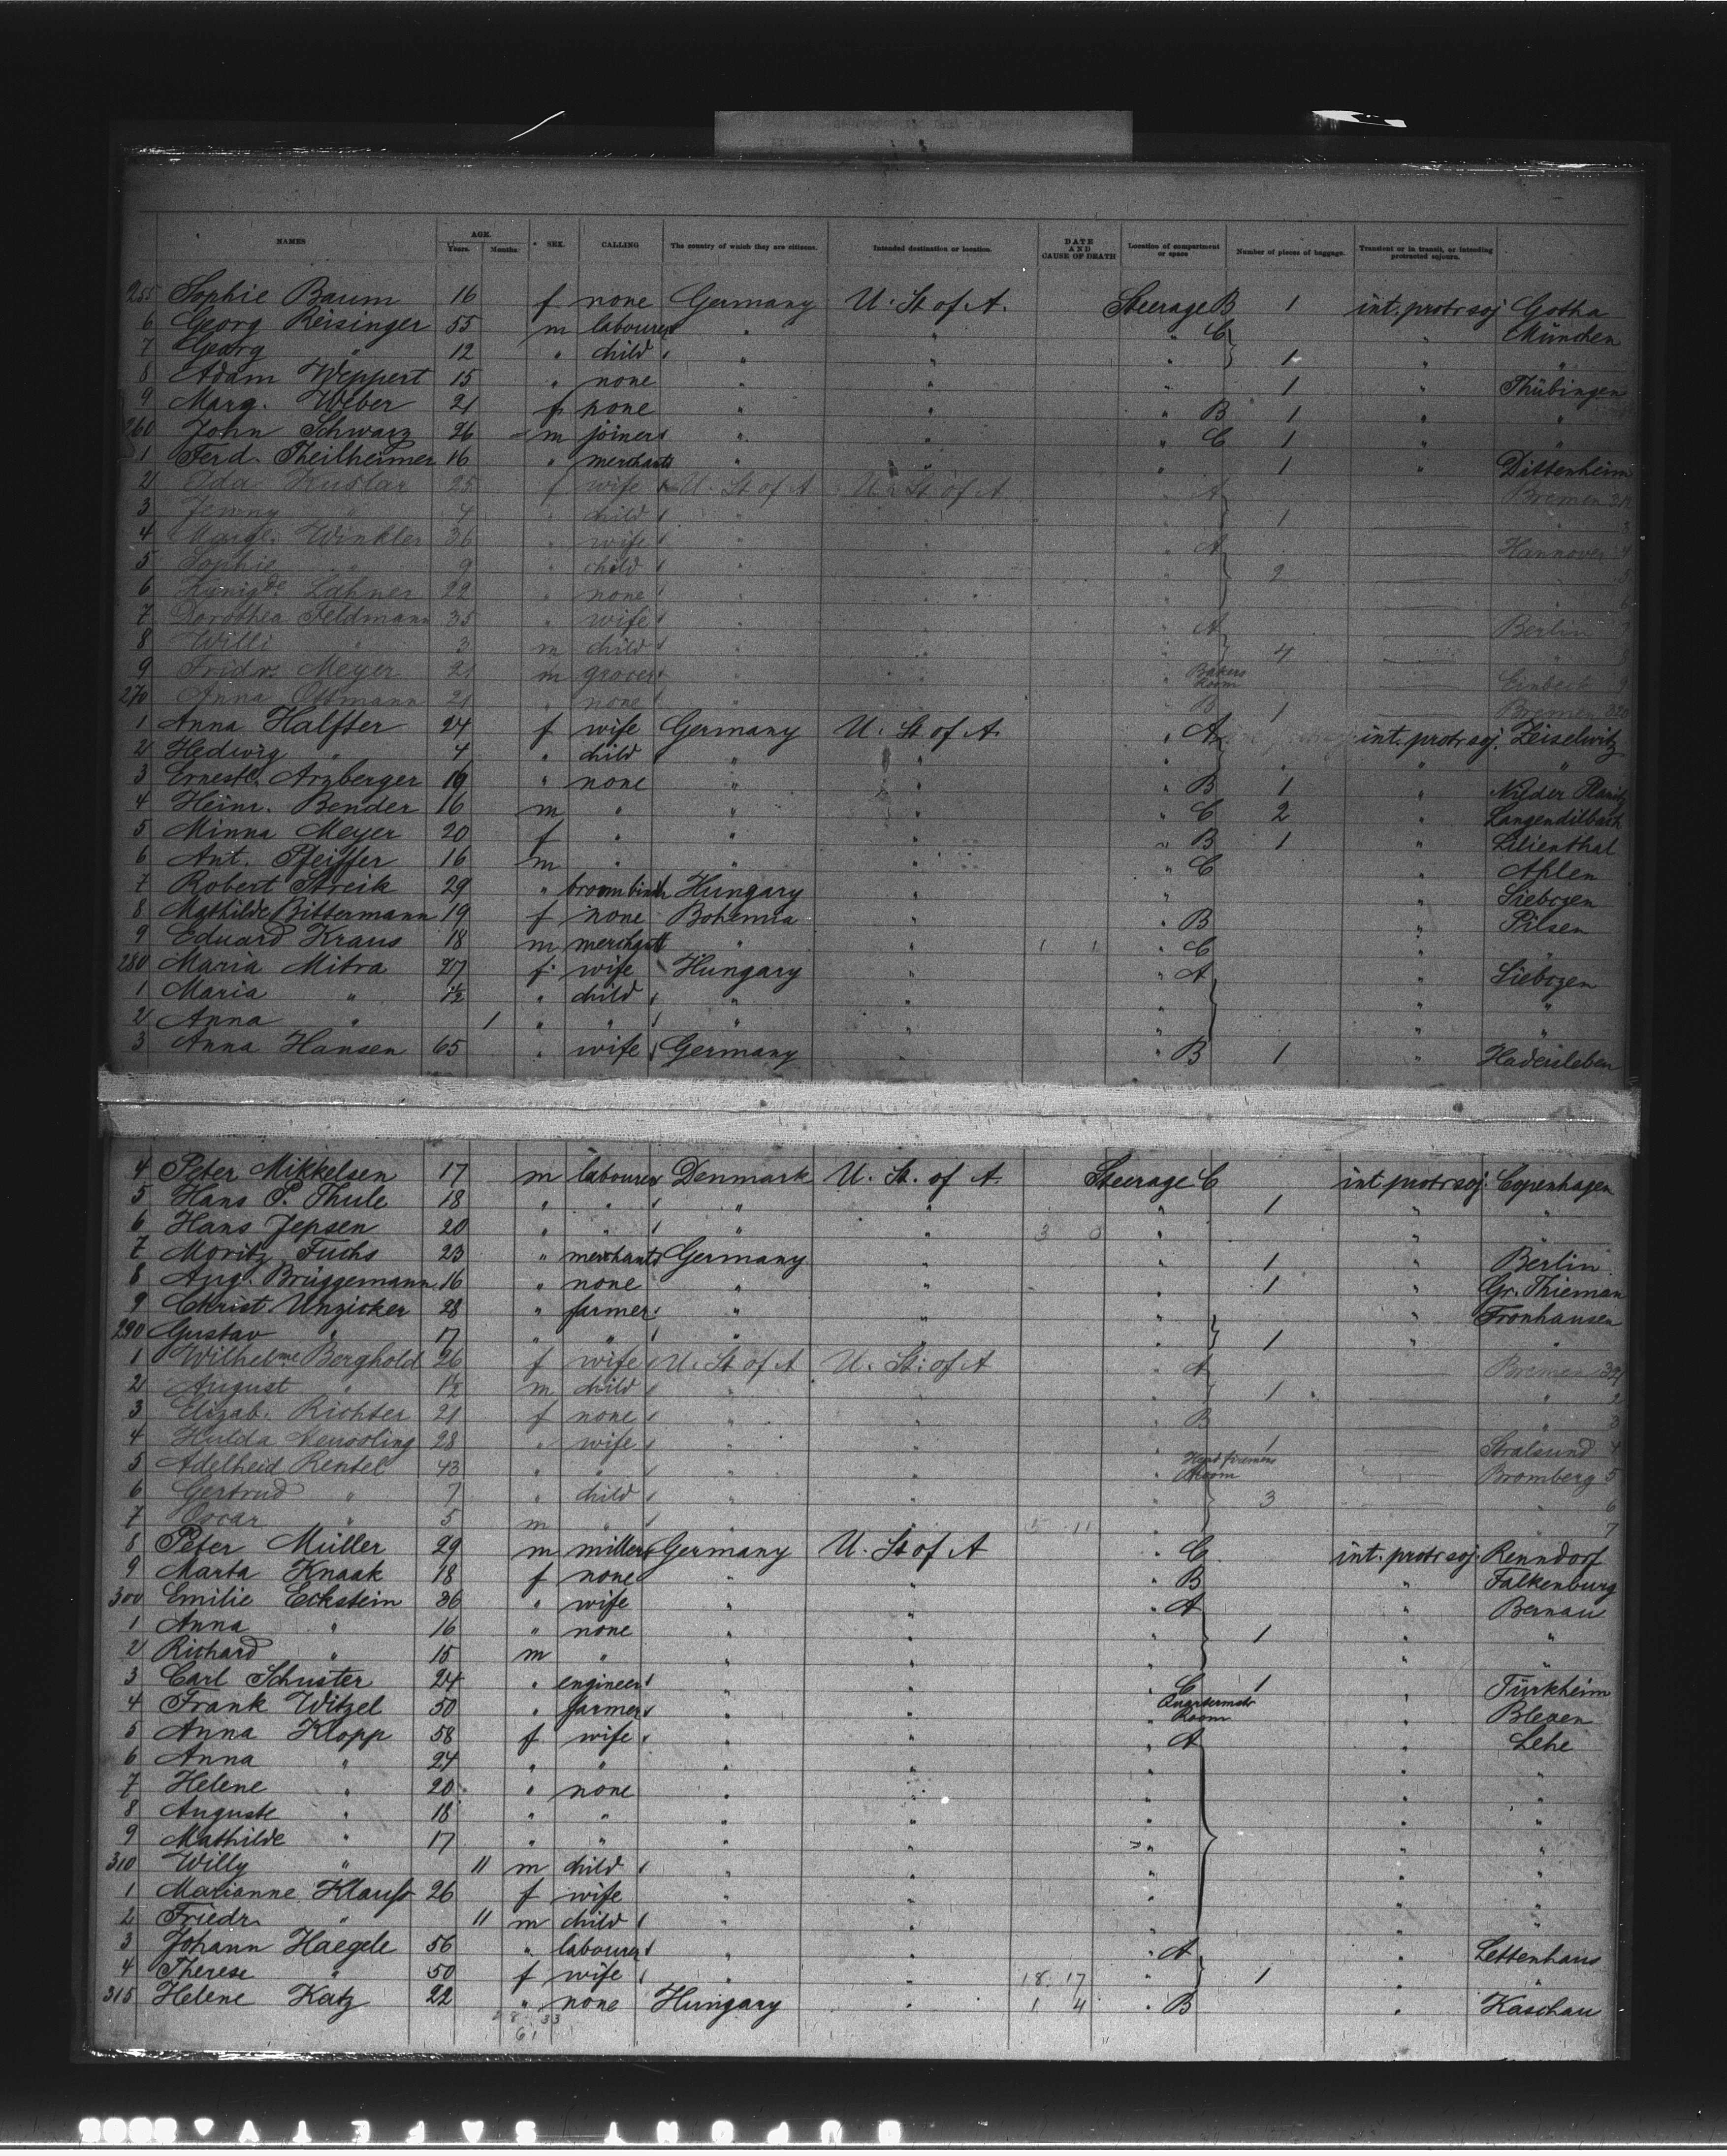 NAMES AGE. Years. Months. SEX. CALLING The country of which they are citizens. Intended destination or location. DATE AND CAUSE OF DEATH Location of compartment or space Number of pieces of baggage. Transient or in transit, or intending protracted sojourn.
255 Sophie Baum 16 f none Germany U. St of A. Steerage B 1 int. protr soj Gotha
6 Georg Reisinger 55 m labourer " " " C " München
7 Georg " 12 " child " " " 1 " "
8 Adam Weppert 15 " none " " " 1 " Thübingen
9 Marg. Weber 21 f none " " " B 1 " "
260 John Schwarz 26 m joiner " " " C 1 " "
1 Ferd. Theilheimer 16 " merchant " " " 1 " Dittenheim
2 Eda Kustar 25 f wife U. St of A U. St of A " A Bremen
3 Jenny " 4 " child " " " 1 "
4 Margt. Winkler 36 " wife " " " A Hannover
5 Sophie " 9 " child " " " 2 "
6 Kunigde. Lahner 22 " none " " " "
7 Dorothea Feldmann 35 " wife " " " A Berlin
8 Willi " 3 m child " " " 4 "
9 Fridr. Meyer 21 m grocer " " " Bakers Room Einbeck
270 Anna Ottmann 21 " none " " " B 1 Bremen 320
1 Anna Halfter 24 f wife Germany U. St of A. " A int. protr soj. Zeiselwitz
2 Hedwig " 4 " child " " " " "
3 Ernest. Arzberger 19 " none " " " B 1 " Nieder Planitz
4 Heinr. Bender 16 m " " " " C 2 " Langendilbach
5 Minna Meyer 20 f " " " " B 1 " Lilienthal
6 Ant. Pfeiffer 16 m " " " " C " Ahlen
7 Robert Streik 29 " broombindr Hungary " " " Siebozen
8 Mathilde Bittermann 19 f none Bohemia " " B " Pilsen
9 Eduard Kraus 18 m merchant " " " C " "
280 Maria Mitra 27 f wife Hungary " " A " Siebozen
1 Maria " 1½ " child " " " " "
2 Anna " 1 " " " " " " "
3 Anna Hansen 65 " wife Germany " " B 1 " Hadersleben
4 Peter Mikkelsen 17 m labourer Denmark U. St. of A. Steerage C int protr soj. Copenhagen
5 Hans P. Thule 18 " " " " " 1 " "
6 Hans Jepsen 20 " " " " 3 0 " " "
7 Moritz Fuchs 23 " merchant Germany " " 1 " Berlin
8 Aug. Brüggemann 16 " none " " " 1 " Gr. Thieman
9 Christ Unzicker 28 " farmer " " " " Fronhausen
290 Gustav " 17 " " " " " 1 " "
1 Wilhelme Berghold 26 f wife U. St of A U. St: of A " A Bremen 321
2 August " 1½ m child " " " 1 " 2
3 Elizab. Richter 21 f none " " " B " 3
4 Hulda 28 " wife " " " 1 Stralsund 4
5 Adelheid Rentel 43 " " " " " Head firemens Room Bromberg 5
6 Gertrud " 7 " child " " " 3 " 6
7 Oscar " 5 m " " " 5 11 " " 7
8 Peter Müller 29 m miller Germany U. St of A " C int. protr soj. Renndorf
9 Marta Knaak 18 f none " " " B " Falkenburg
300 Emilie Eckstein 36 " wife " " " A " Bernau
1 Anna " 16 " none " " " 1 " "
2 Richard " 15 m " " " " " "
3 Carl Schuster 24 " engineer " " " C 1 " Türkheim
4 Frank Witzel 50 " farmer " " " Quartermstr Room " Blexen
5 Anna Klopp 58 f wife " " " A " Lehe
6 Anna " 24 " " " " " " "
7 Helene " 20 " none " " " " "
8 Auguste " 18 " " " " " " "
9 Mathilde " 17 " " " " " " "
310 Willy " 11 m child " " " " "
1 Marianne Klauss 26 f wife " " " " "
2 Friedr. " 11 m child " " " " "
3 Johann Haegele 56 " labourer " " " A " Lettenhaus
4 Therese " 50 f wife " " 18 17 " 1 " "
315 Helene Katz 22 " none Hungary " 1 4 " B " Kaschau
28 33
61
SAFETY
DUPONT